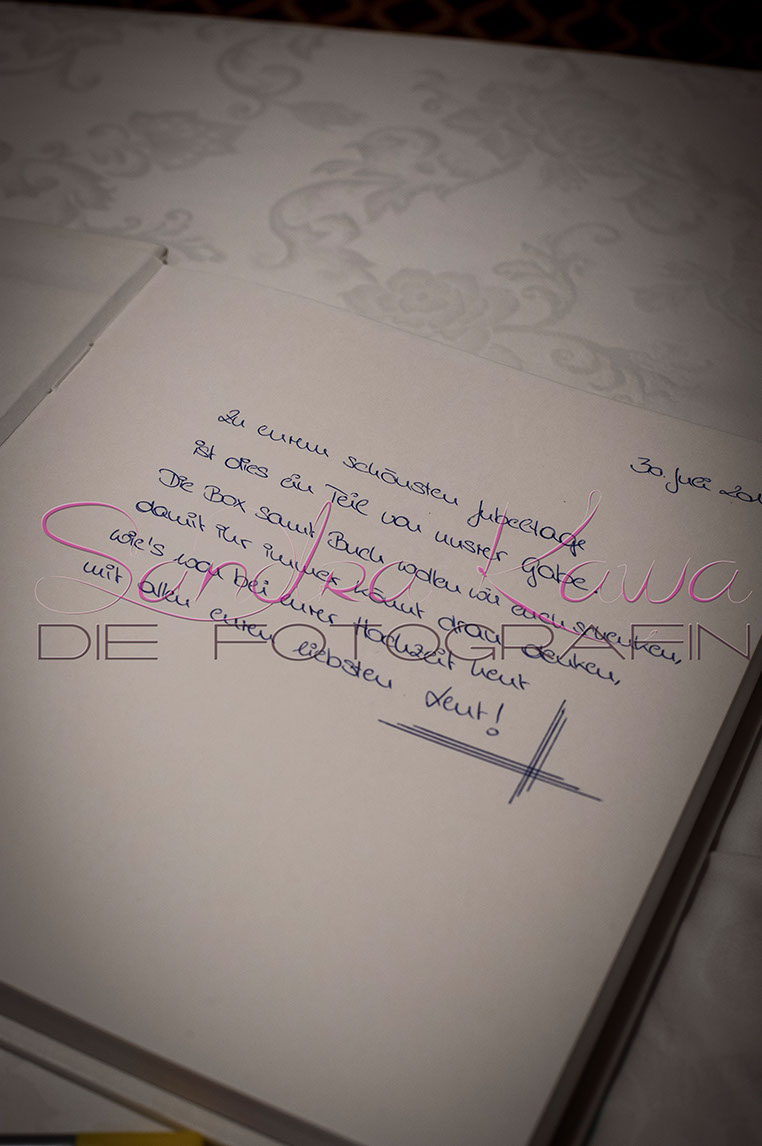 30. Juli 201
Zu eurem schönsten Jubeltage
ist dies ein Teil von unsrer Gabe.
Die Box samt Buch wollen wir euch schenken,
damit ihr immer könnt dran denken,
wie's war bei eurer Hochzeit heut
mit allen euren liebsten Leut!
Sandra Kawa
DIE FOTOGRAFIN